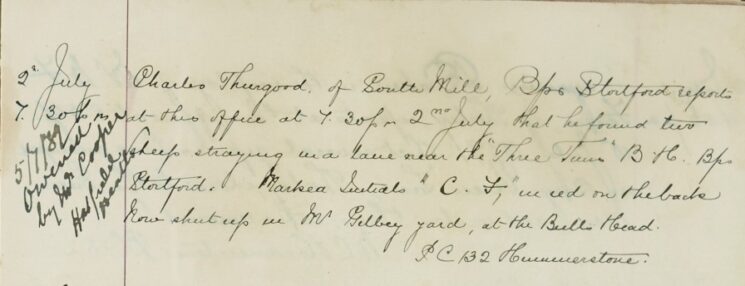 2d July
7. 30 p m
5/7/89
Owened
by Mr Cooper
Hatfield
Charles Thurgood. of South Mill, Bps Stortford reports
at this office at 7. 30 p m 2nd July that he found two
sheep straying in a lane near the "Three Tuns" B. H. Bps
Stortford. Marked Initials "C. F," in red on the back
Now shut up in Mr Gilbey yard, at the Bulls Head.
P C 132 Hummerstone.